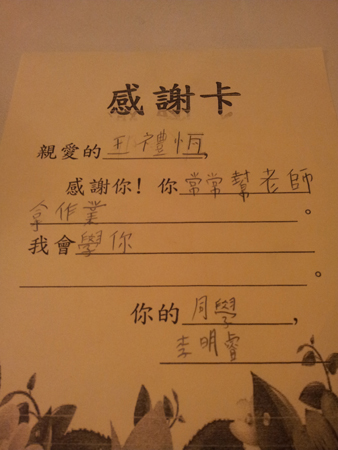 感謝卡
親愛的 王禮恆,
感謝你！你常常幫老師
拿作業。
我會學你
。
你的 同學,
李明睿